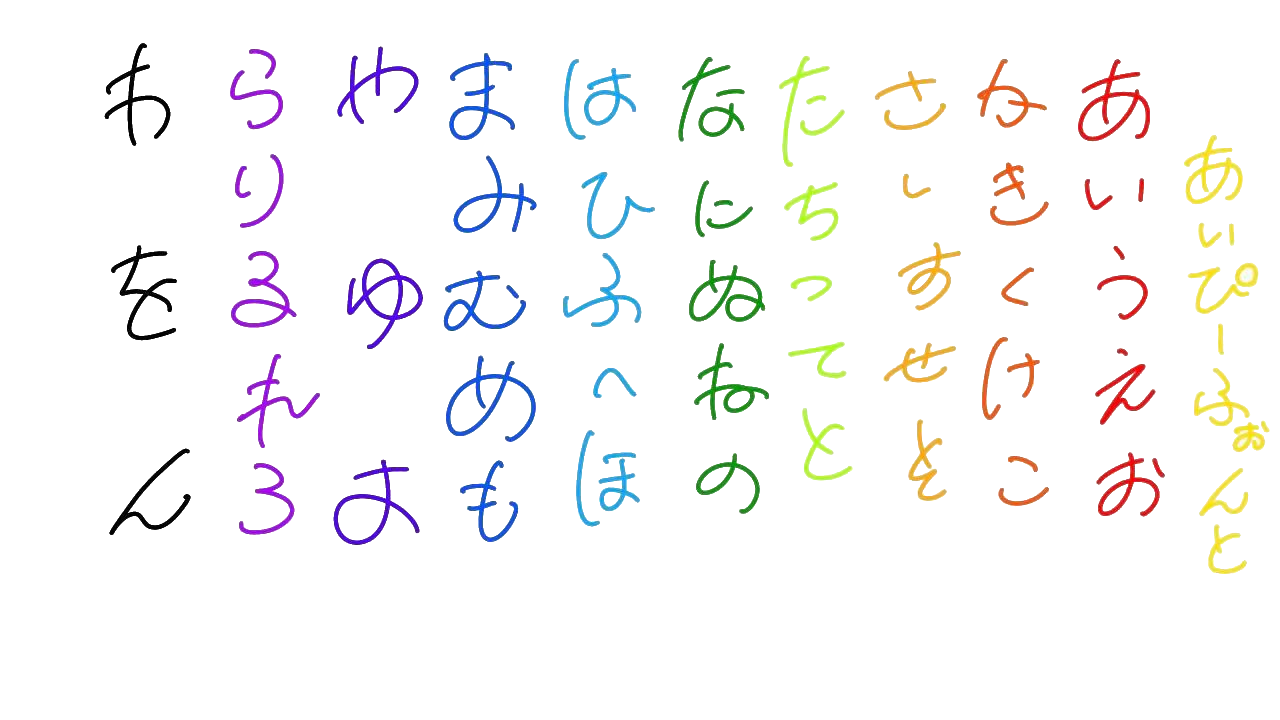 あいぴーふぉんと
あいうえお
かきくけこ
さしすせそ
たちつてと
なにぬねの
はひふへほ
まみむめも
やゆよ
らりるれろ
わをん